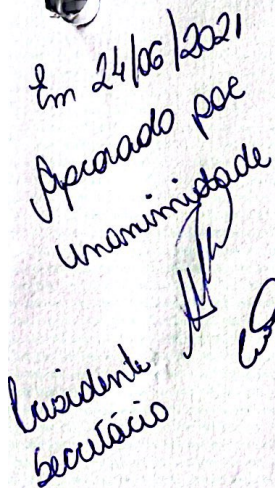 Em 24/06/2021
Aprovado por
unanimidade
Presidente
Secretário